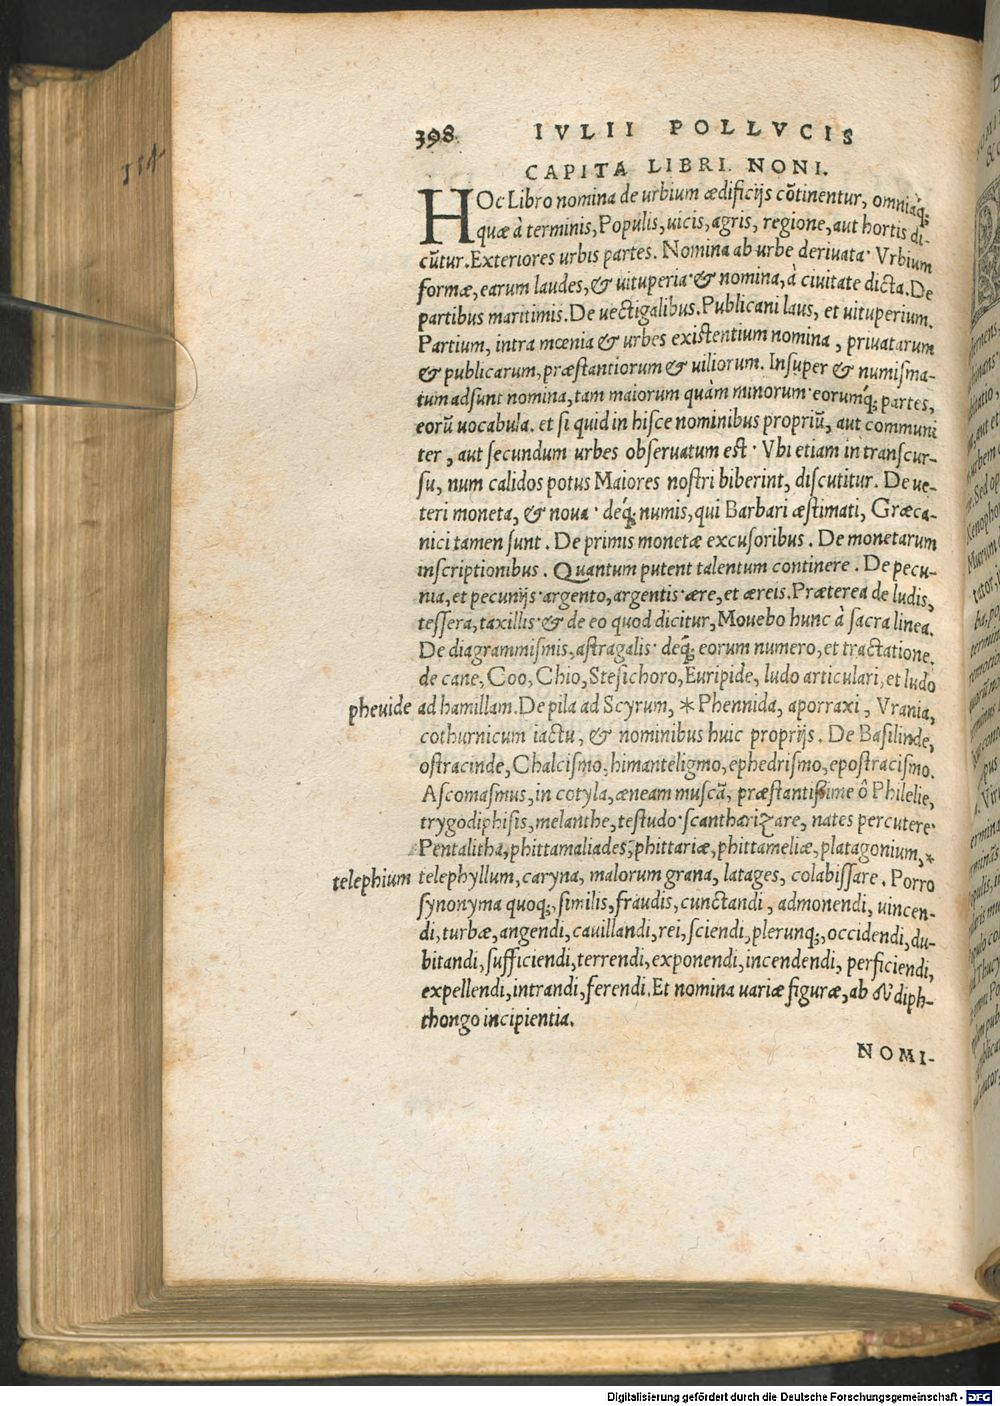 398. IVLII POLLVCIS
114
CAPITA LIBRI NONI.
HOc Libro nomina de urbium ædificijs cōtinentur, omniaq́;
quæ à terminis, Populis, uicis, agris, regione, aut hortis di-
cūtur. Exteriores urbis partes. Nomina ab urbe deriuata· Vrbium
formæ, earum laudes, & uituperia· & nomina, à ciuitate dicta. De
partibus maritimis. De uectigalibus. Publicani laus, et uituperium.
Partium, intra mœnia & urbes existentium nomina, priuatarum
& publicarum, præstantiorum & uiliorum. Insuper & numisma-
tum adsunt nomina, tam maiorum quàm minorum· eorumq́; partes,
eorū uocabula. et si quid in hisce nominibus propriū, aut communi
ter, aut secundum urbes obseruatum est· Vbi etiam in transcur-
su, num calidos potus Maiores nostri biberint, discutitur. De ue-
teri moneta, & noua· deq́; numis, qui Barbari æstimati, Græca-
nici tamen sunt. De primis monetæ excusoribus. De monetarum
inscriptionibus. Quantum putent talentum continere. De pecu-
nia, et pecunijs· argento, argentis· ære, et æreis. Præterea de ludis,
tessera, taxillis· & de eo quod dicitur, Mouebo hunc à sacra linea.
De diagrammismis, astragalis· deq́; eorum numero, et tractatione.
de cane, Coo, Chio, Stesichoro, Euripide, ludo articulari, et ludo
pheuide ad hamillam. De pila ad Scyrum, *Phennida, aporraxi, Vrania,
cothurnicum iactu, & nominibus huic proprijs. De Basilinde,
ostracinde, Chalcismo, himanteligmo, ephedrismo, epostracismo.
Ascomasmus, in cotyla, æneam muscā, præstantissime ô Philelie,
trygodiphisis, melanthe, testudo· scantharizare, nates percutere·
Pentalitha, phittamaliades, phittariæ, phittameliæ, platagonium, *
telephium telephyllum, caryna, malorum grana, latages, colabissare. Porro
synonyma quoq;, similis, fraudis, cunctandi, admonendi, uincen-
di, turbæ, angendi, cauillandi, rei, sciendi, plerunq;, occidendi, du-
bitandi, sufficiendi, terrendi, exponendi, incendendi, perficiendi,
expellendi, intrandi, ferendi. Et nomina uariæ figuræ, ab diph-
thongo incipientia.
NOMI-
Digitalisierung gefördert durch die Deutsche Forschungsgemeinschaft - DFG